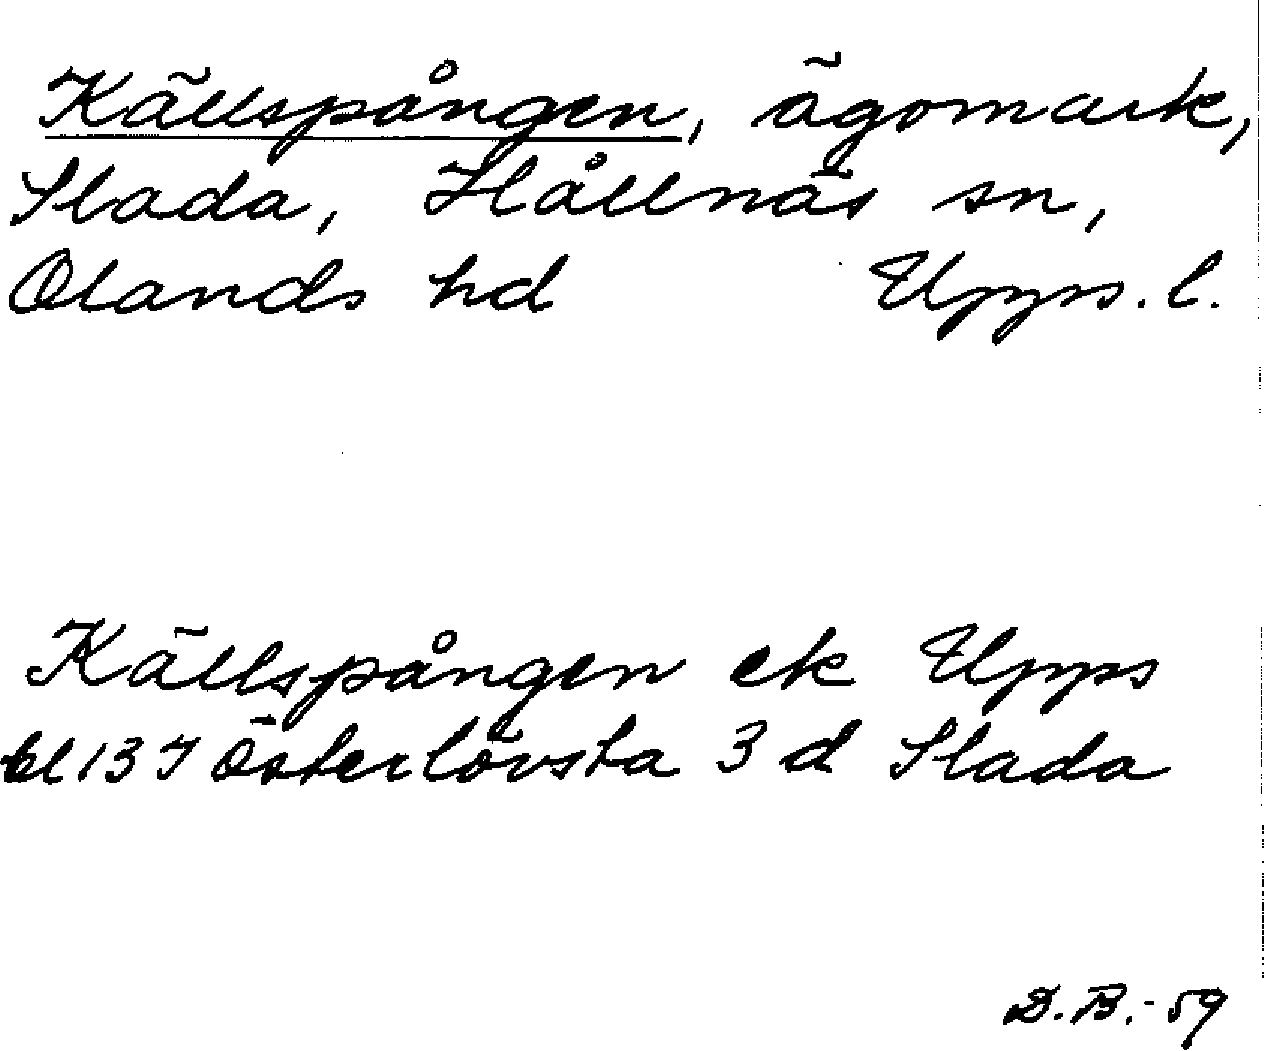 Källspången, ägomark,
Slada, Hållnäs sn,
Olands hd Upps. l.
Källspången ek Upps
bl 13 I Österlövsta 3 d Slada
D.B.-59